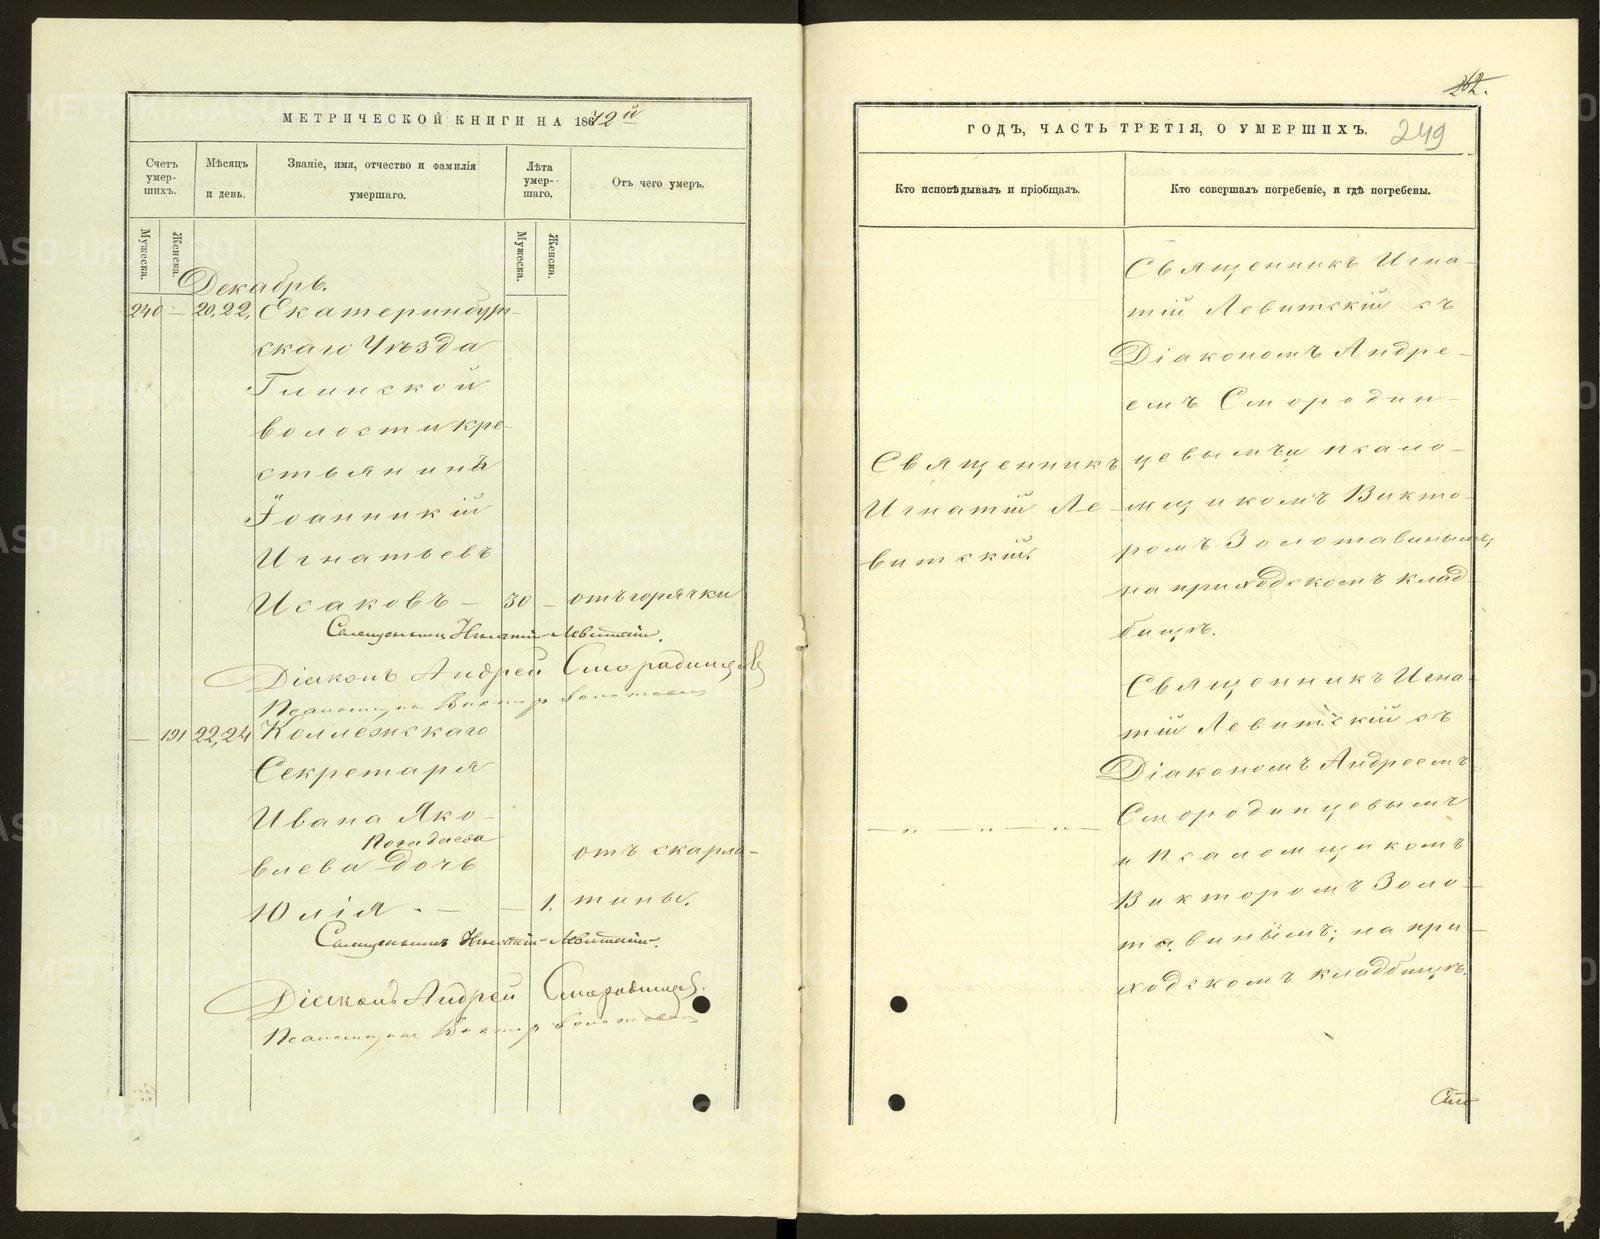 МЕТРИЧЕСКОЙ КНИГИ НА 1872й
Счетъ умер-шихъ.
Мѣсяцъ и день.
Званіе, имя, отчество и фамилія умершаго.
Лѣта умер-шаго.
Отъ чего умеръ.
Мужеска.
Женска.
Мужеска.
Женска.
Декабрь.
240 — 20,22, Екатеринбург-
скаго Уѣзда
Глинской
волости кре-
стьянинъ
Іоанникій
Игнатьевъ
Исаковъ — 30 — отъ горячки
Священникъ Игнатій Левитскій.
Діаконъ Андрей Смородинцевъ
Псаломщикъ Викторъ Золотавинъ
— 191 22,24 Коллежскаго
Секретаря
Ивана Яко-
Погадаева
влева Дочь отъ скарла-
Юлія. — — 1. тины.
Священникъ Игнатій Левитскій.
Діаконъ Андрей Смородинцевъ.
Псаломщикъ Викторъ Золотавинъ
262.
ГОДЪ, ЧАСТЬ ТРЕТІЯ, О УМЕРШИХЪ.
249
Кто исповѣдывалъ и пріобщалъ.
Кто совершалъ погребеніе, и гдѣ погребены.
Священникъ
Игнатій Ле-
витскій.
Священникъ Игна-
тій Левитскій съ
Діакономъ Андре-
емъ Смородин-
цевымъ и псало-
мщикомъ Викто-
ромъ Золотавинымъ,
на приходскомъ клад-
бищѣ.
— „ — „ — „ —
Священникъ Игна-
тій Левитскій съ
Діакономъ Андреемъ
Смородинцевымъ
и Псаломщикомъ
Викторомъ Золо-
тавинымъ; на при-
ходскомъ кладбищѣ.
METRIKI.GASO-URAL.RU